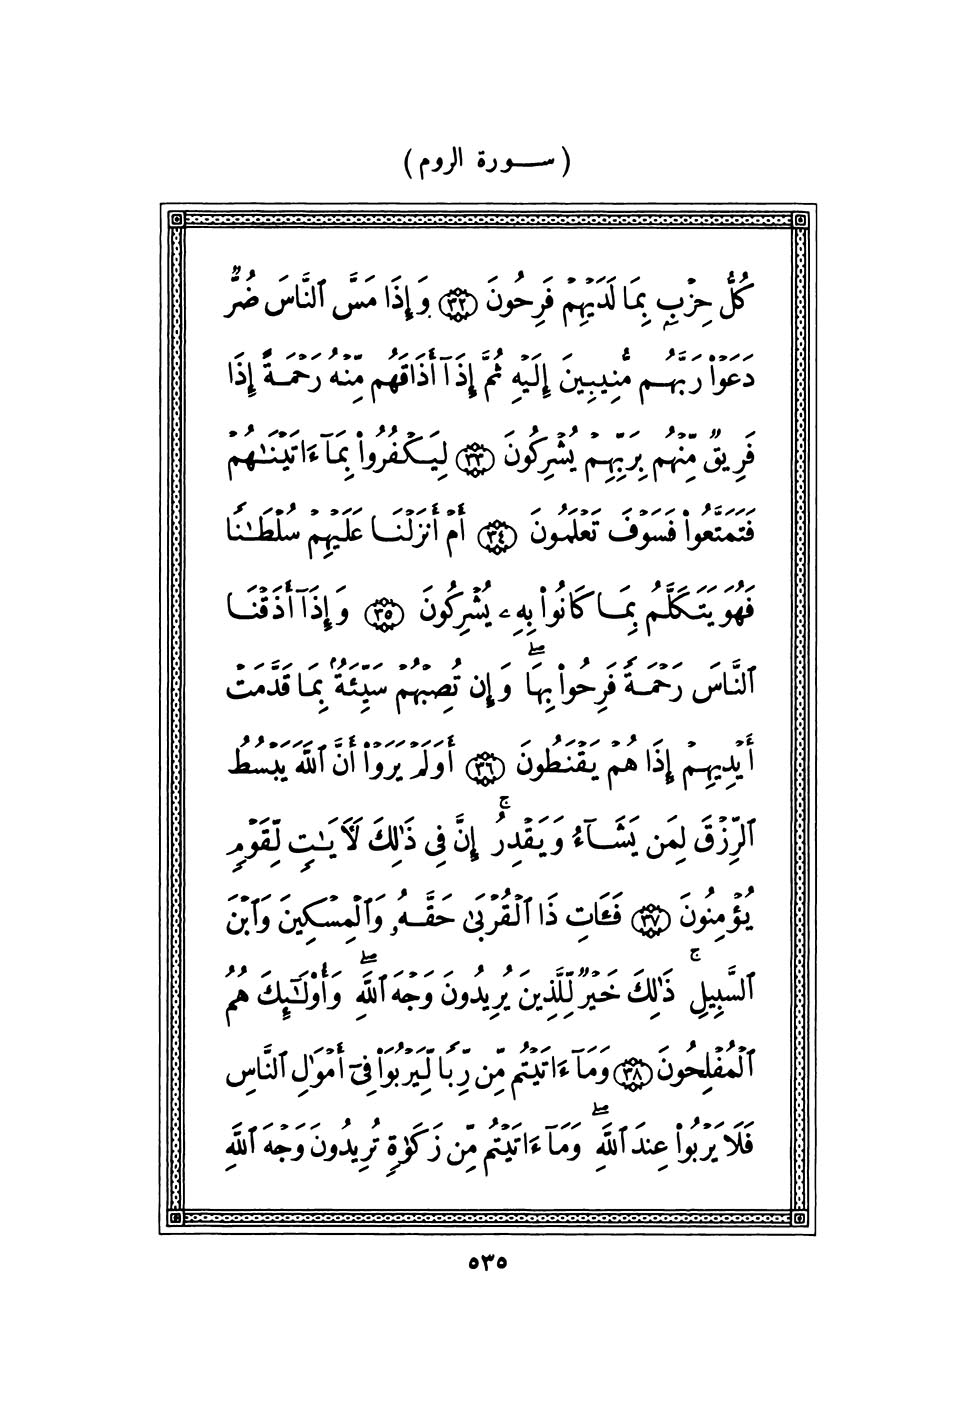 ( ســورة الروم )
كُلُّ حِزْبِۭ بِمَا لَدَيْهِمْ فَرِحُونَ ٣٢ وَإِذَا مَسَّ ٱلنَّاسَ ضُرٌّ
دَعَوْا۟ رَبَّهُم مُّنِيبِينَ إِلَيْهِ ثُمَّ إِذَآ أَذَاقَهُم مِّنْهُ رَحْمَةً إِذَا
فَرِيقٌ مِّنْهُم بِرَبِّهِمْ يُشْرِكُونَ ٣٣ لِيَكْفُرُوا۟ بِمَآ ءَاتَيْنَـٰهُمْ
فَتَمَتَّعُوا۟ فَسَوْفَ تَعْلَمُونَ ٣٤ أَمْ أَنزَلْنَا عَلَيْهِمْ سُلْطَـٰنًا
فَهُوَ يَتَكَلَّمُ بِمَا كَانُوا۟ بِهِۦ يُشْرِكُونَ ٣٥ وَإِذَآ أَذَقْنَا
ٱلنَّاسَ رَحْمَةً فَرِحُوا۟ بِهَا ۖ وَإِن تُصِبْهُمْ سَيِّئَةٌۢ بِمَا قَدَّمَتْ
أَيْدِيهِمْ إِذَا هُمْ يَقْنَطُونَ ٣٦ أَوَلَمْ يَرَوْا۟ أَنَّ ٱللَّهَ يَبْسُطُ
ٱلرِّزْقَ لِمَن يَشَآءُ وَيَقْدِرُ ۚ إِنَّ فِى ذَٰلِكَ لَـَٔايَـٰتٍ لِّقَوْمٍ
يُؤْمِنُونَ ٣٧ فَـَٔاتِ ذَا ٱلْقُرْبَىٰ حَقَّهُۥ وَٱلْمِسْكِينَ وَٱبْنَ
ٱلسَّبِيلِ ۚ ذَٰلِكَ خَيْرٌ لِّلَّذِينَ يُرِيدُونَ وَجْهَ ٱللَّهِ ۖ وَأُو۟لَـٰٓئِكَ هُمُ
ٱلْمُفْلِحُونَ ٣٨ وَمَآ ءَاتَيْتُم مِّن رِّبًا لِّيَرْبُوَا۟ فِىٓ أَمْوَٰلِ ٱلنَّاسِ
فَلَا يَرْبُوا۟ عِندَ ٱللَّهِ ۖ وَمَآ ءَاتَيْتُم مِّن زَكَوٰةٍ تُرِيدُونَ وَجْهَ ٱللَّهِ
٥٣٥